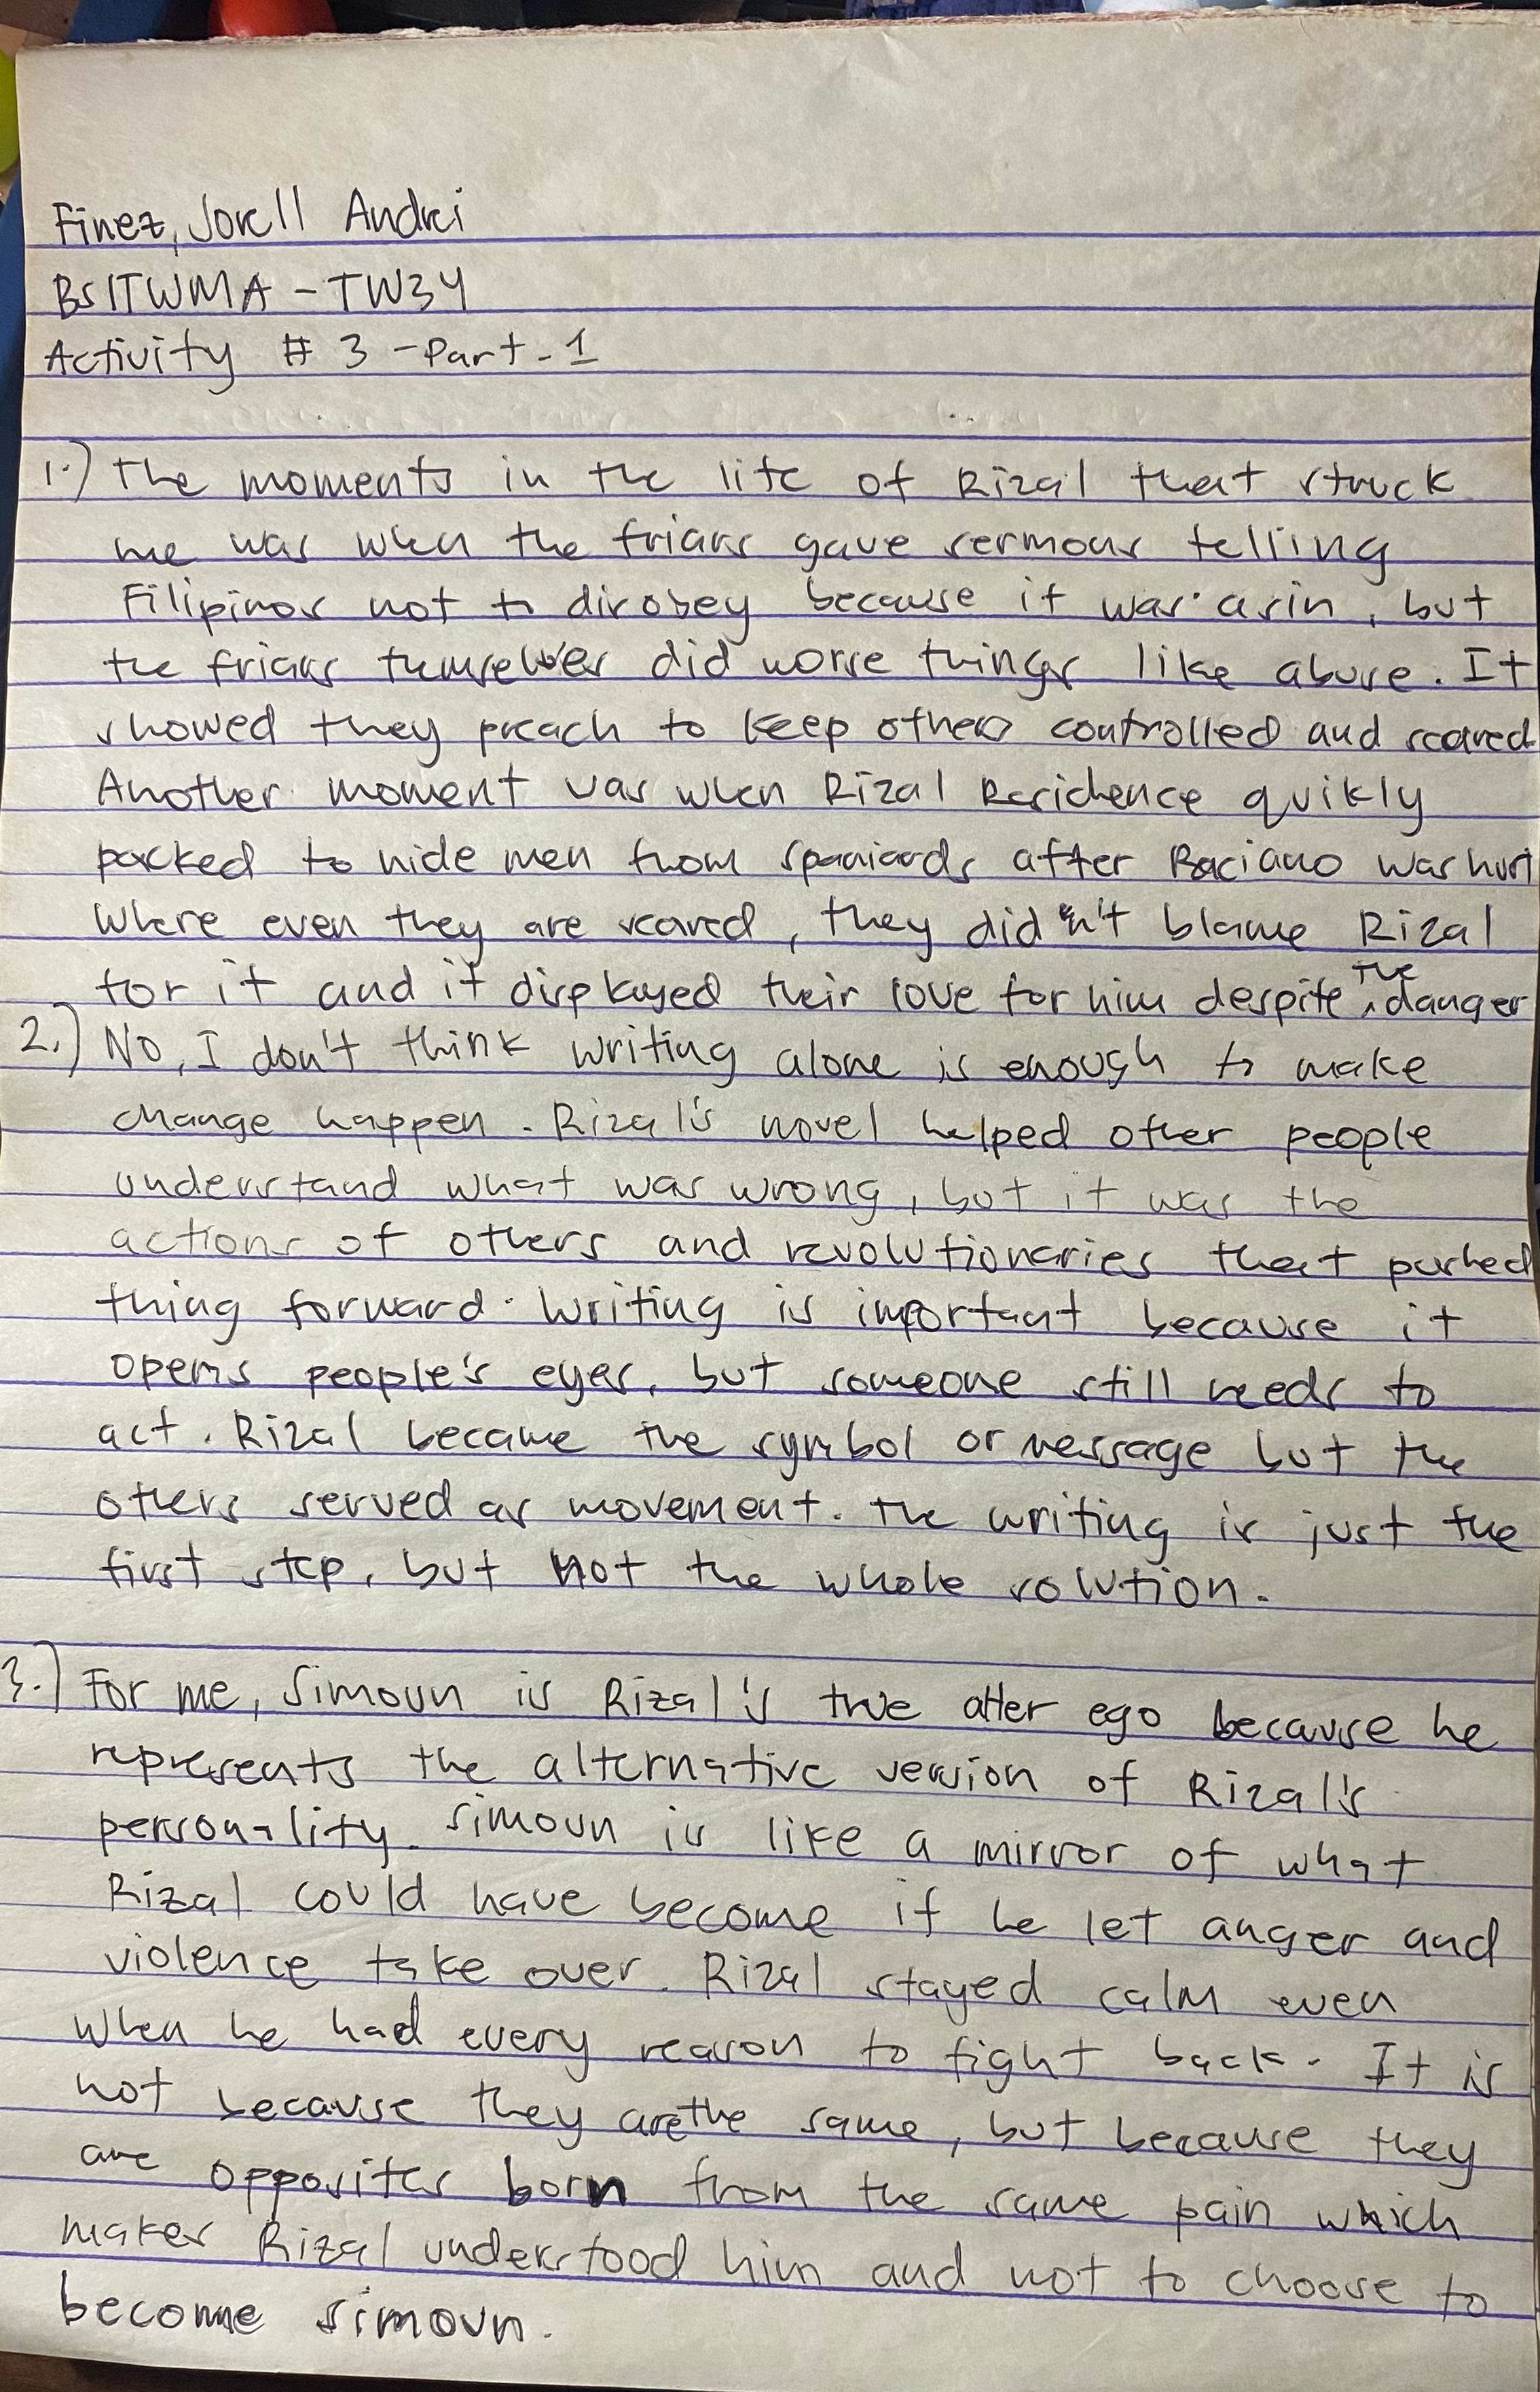 Finez, Jorell Andrei
BSITWMA - TW34
Activity # 3 - Part - 1
1.) The moments in the life of Rizal that struck
me was when the friars gave sermons telling
Filipinos not to disobey because it was a sin, but
the friars themselves did worse things like abuse. It
showed they preach to keep others controlled and scared
Another moment was when Rizal Residence quikly
packed to hide men from spaniards after Paciano was hurt
Where even they are scared, they didn't blame Rizal
for it and it displayed their love for him despite the danger
2.) No, I don't think writing alone is enough to make
change happen. Rizal's novel helped other people
understand what was wrong, but it was the
actions of others and revolutionaries that pushed
thing forward. Writing is important because it
opens people's eyes, but someone still needs to
act. Rizal became the symbol or message but the
others served as movement. The writing is just the
first step, but not the whole solution.
3.) For me, Simoun is Rizal's true alter ego because he
represents the alternative version of Rizal's
personality. Simoun is like a mirror of what
Rizal could have become if he let anger and
violence take over. Rizal stayed calm even
when he had every reason to fight back. It is
not because they are the same, but because they
are opposites born from the same pain which
makes Rizal understood him and not to choose to
become simoun.